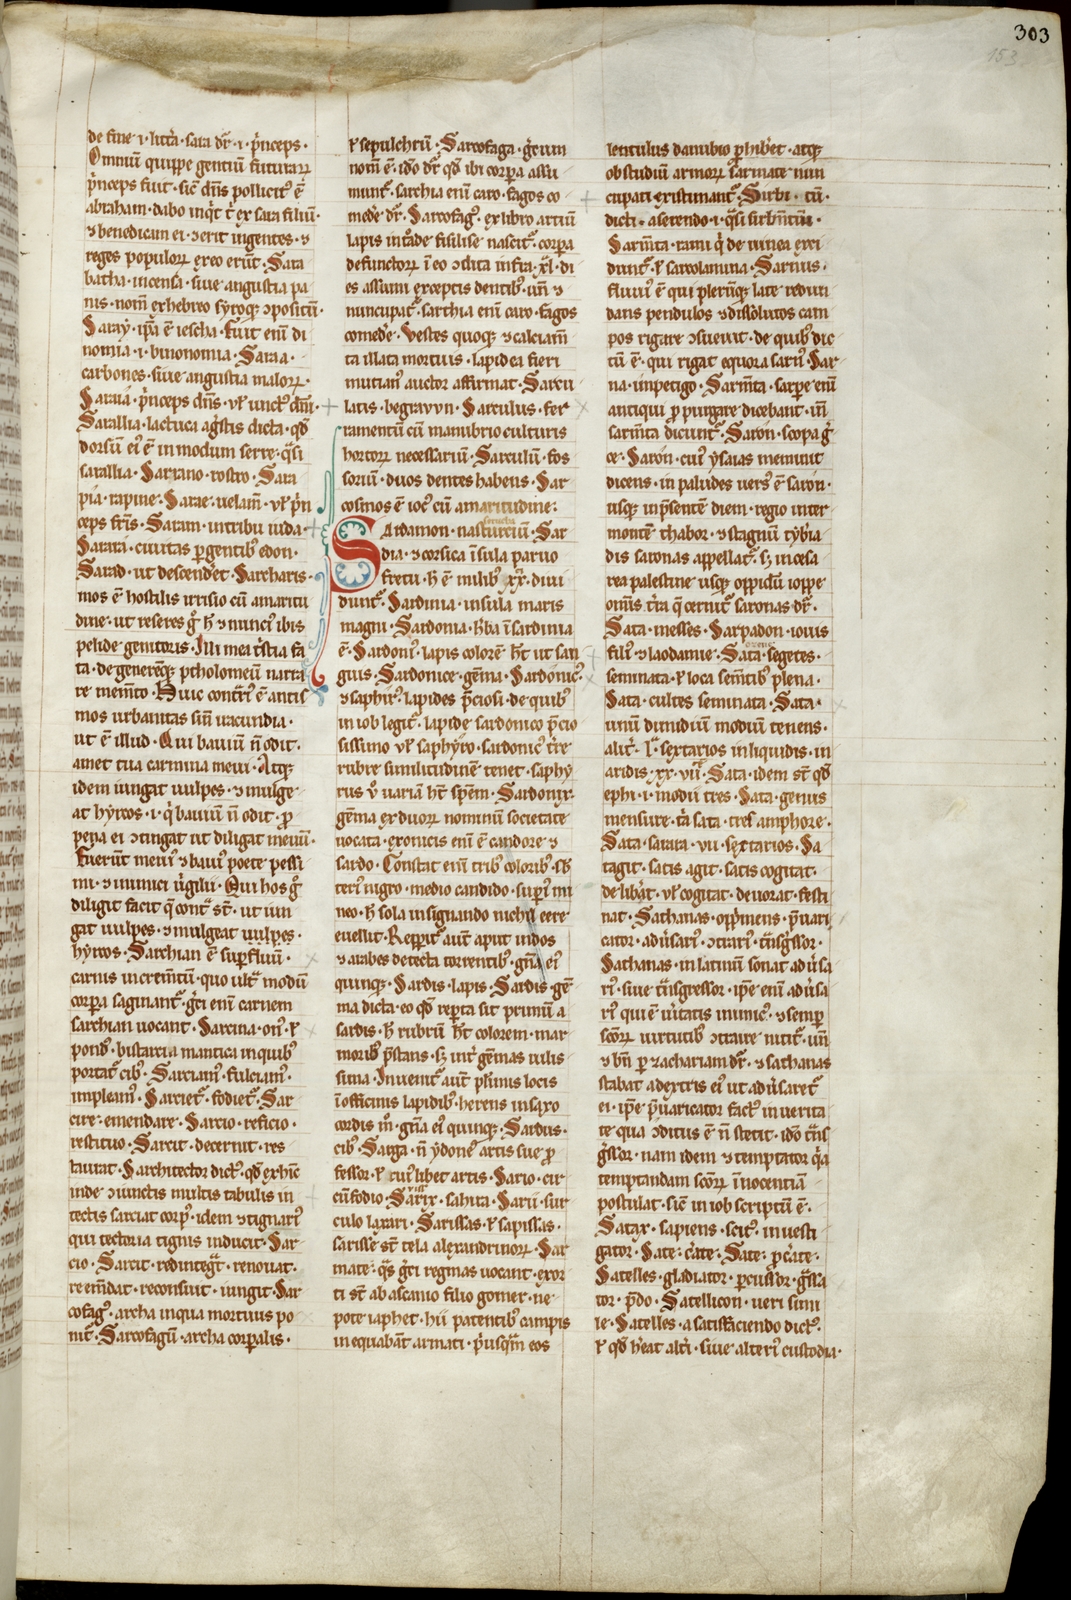 303
153
de fine ·i· litt̄a · sara dr̄ ·i· p̄nceps ·
Omniū quippe gentiū futurarꝝ
p̄nceps fuit · sic̄ dn̄s pollicitꝰ ē
abraham · dabo inq̇t t̄ ex sara filiū ·
⁊ benedicam ei · ⁊ erit ingentes · ⁊
reges populorꝝ ex eo erūt · Sara
batha · incensa · siue angustia pa
nis · nom̄ ex hebreo syroqꝫ ↄpositū ·
Saray · ip̄a ē iescha · Fuit eni di
nomia ·i· binonomia · Saraa ·
carbones · siue angustia malorꝝ ·
Saraia · p̄nceps dn̄s · vl̓ unctꝰ dn̄i ·
Sarallia · lactuca ag̓stis dicta · qd̓
dorsū eiꝰ ē in modum serre · q̄si
sarallia · Sariano · rostro · Sara
pia · rapine · Sarae · uelam̄ · vl̓ p̄n
ceps fr̄is · Saram · in tribu iuda ·
Sarara · ciuitas p̱ gentibꝰ edon ·
Sarad · ut descend̓et · Sarcharis
mos ē hostilis irrisio cū amaritu
dine · ut reseres g̊ h̄ ⁊ nunciꝰ ibis
pelide genitoris · Illi mea t̓stia fa
ta · degenereqꝫ ptholomeū narra
re mem̄to · Huic cont̄iꝰ ē antis
mos urbanitas sin̄ iracundia ·
ut ē illud · Qui bauiū n̄ odit ·
amet tua carmina meui · Atqꝫ
idem iungat uulpes · ⁊ mulge
at hyrcos ·i· q̇ bauiū n̄ odit · ꝓ
pena ei ↄtingat ut diligat meuiū ·
Fuerūt meuiꝰ ⁊ bauiꝰ poete pessi
mi · ⁊ inimici u̓gilii · Qui hos g̊
diligit facit q̄ cont̄ st̄ · ut iun
gat uulpes · ⁊ mulgeat uulpes ·
hyrcos · Sarchian ē suꝑfluū ·
carnis increm̄tū · quo ult̄ modū
corꝑa saginant᷑ · gr̄ci eni carnem
sarchian uocant · Sarcina · onꝰ · ł
pondꝰ · bistarcia mantica in quibꝰ
portat᷑ cibꝰ · Sarciamꝰ · fulciamꝰ ·
impleamꝰ · Sarciet᷑ · fodiet᷑ · Sar
cire · emendare · Sarcio · reficio ·
restituo · Sarcit · decernit · res
taurat · Sarchitector dictꝰ · qd̓ ex hīc
inde ↄiunctis multis tabulis in
tectis sarciat corpꝰ · idem ⁊ tignariꝰ
qui tectoria tignis inducit · Sar
cio · Sarcit · redinteg̓t · renouat ·
reem̄dat · reconsuit · iungit · Sar
cofagꝰ · archa in qua mortuus po
nit᷑ · Sarcofagū · archa corꝑalis ·
ł sepulchrū · Sarcofaga · gr̄cum
nom̄ ē · ido dr̄ qd̓ ibi corꝑa assu
munt᷑ · sarchia eni caro · fagos co
med̓e dr̄ · Sarcofagꝰ · ex libro artiū
lapis in t̓oade fisili se nascit᷑ · corꝑa
defunctorꝝ ī eo ↄdita infra · xl · di
es assumi exceptis dentibꝰ · un̄ ⁊
nuncupat᷑ · sarchia eni caro · fagos
comed̓e · Vestes quoqꝫ ⁊ calciam̄
ta illata mortuis · lapidea fieri
mutianꝰ auctor affirmat · Sarcu
latis · begravyn · Sarculus · fer
ramentū cū manubrio culturis
hortorꝝ necessariū · Sarculū · fos
soriū · duos dentes habens · Sar
cosmos ē iocꝰ cū amaritudine :
Sardamon · nasturciū · Sar
dia · ⁊ corsica ī sula paruo
fretu · h̄ ē milibꝰ xx · diui
dunt᷑ · Sardinia · insula maris
magni · Sardonia · h̓ba ī sardinia
ē · Sardoniꝰ · lapis colorē h̄t ut san
guis · Sardonice · gēma · Sardonicꝰ ·
⁊ saphirꝰ · lapides p̄ciosi · de quibꝰ
in iob legit᷑ · lapide sardonico p̄cio
sissimo vl̓ saphyro · sardonicꝰ t̓re
rubre similitudinē tenet · saphy
rus u̓ uariā h̄t spēm · Sardonix ·
gēma ex duorꝝ nominū societate
uocata · ex onicis eni ē candore ⁊
sardo · Constat eni tribꝰ coloribꝰ · sb̓
teriꝰ nigro · medio candido · suꝑiꝰ mi
neo · h̄ sola in signando nichil cere
euellit · Repperit᷑ aūt aput indos
⁊ arabes detecta torrentibꝰ · gn̄a eiꝰ
quinqꝫ · Sardis · lapis · Sardis · gē
ma dicta · eo qd̓ rep̱ta sit primū a
sardis · h̄ rubrū h̄t colorem · mar
moribꝰ p̄stans · sꝫ int̓ gēmas uilis
sima · Inuenit᷑ aūt plimis locis
ī officinis lapidibꝰ · herens in saxo
cordis m̊ · gn̄a eiꝰ quinqꝫ · Sardus ·
cibꝰ · Sarga · n̄ ydoneꝰ artis sue ꝓ
fessor · ł cuiꝰ libet artis · Sario · cir
cū fodio · Sarix · sahira · Sarii · sur
culo laxari · Sarissas · ł sapissas ·
sarisse st̄ tela alexandrinorꝝ · Sar
mate · q̄s gr̄ci regmas uocant · exor
ti st̄ ab ascanio filio gomer · ne
pote iaphet · hii patentibꝰ campis
inequabāt armati · p̓usq̄m eos
lentulus danubio ꝓhib̓et · atqꝫ
ob studiū armorꝝ sarmate nun
cupati existimant᷑ · Sirbi · cū ·
dicti · a serendo ·i· q̄si sirb̄ntiū ·
Sarm̄ta · rami q̇ de uinea exci
dunt᷑ · ł sarcolamina · Sarnus ·
fluuiꝰ ē qui plerūqꝫ late redun
dans pendulos ⁊ dissolutos cam
pos rigare ↄsueuit · de quibꝰ dic
tū ē · qui rigat equora sarnꝰ · Sar
na · impetigo · Sarm̄ta · sarpe eni
antiqui ꝓ purgare dicebant · in̄
sarm̄ta dicunt᷑ · Saron · scopa g̓
ce · Saron · cuiꝰ ysaias meminit
dicens · in paludes uersꝰ ē saron ·
usqꝫ in p̄sentē diem · regio inter
montē thabor · ⁊ stagnū tyb̓ia
dis saronas appellat᷑ · sꝫ in cesa
rea palestine usqꝫ oppidū ioppe
om̄is t̓ra q̄ cernit᷑ saronas dr̄ ·
Sata · messes · Sarpadon · iouis
filiꝰ ⁊ laodamie · Sata · segetes ·
seminata · ł loca sem̄tibꝰ plena ·
Sata · cultes seminata · Sata ·
unū dimidiū modiū tenens ·
alit̓ · lͣ · sextarios in liquidis · in
aridis · xx · vii · Sata · idem st̄ qd̓
ephi ·i· modii tres · Sata · genus
mensure · t̓a sata · tres amphore ·
Sata · sarata · vii · sextarios · Sa
tagit · satis agit · satis cogitat ·
delib̓at · vl̓ cogitat · deuorat · festi
nat · Sathanas · opp̓mens · p̄uari
cator · adu̓sariꝰ · ↄtrariꝰ · t̓nsg̓ssor ·
Sathanas · in latinū sonat adu̓sa
riꝰ · siue t̓nsgressor · ip̄e eni adu̓sa
riꝰ qui ē u̓itatis inimicꝰ · ⁊ semꝑ
scōrꝝ uirtutibꝰ ↄtraire nitit᷑ · un̄
⁊ bn̄ ꝑ zachariam dr̄ · ⁊ sathanas
stabat a dextris eiꝰ ut adu̓saret᷑
ei · ip̄e p̄uaricator factꝰ in uerita
te qua ↄditus ē n̄ stetit · ido t̓ns
g̓ssor · nam idem ⁊ temptator q̄a
temptandam scōrꝝ īnocentiā
postulat · sic̄ in iob scriptū ē ·
Satax · sapiens · scitꝰ · inuesti
gator · Sate · c̓ate · Sate · ꝓc̓ate ·
Satelles · gladiator · percussor · g̓ssa
tor · p̓do · Satellicon · ueri simi
le · Satelles · a satisfaciendo dictꝰ ·
ł qd̓ h̓eat alt̓i · siue alteriꝰ custodia ·